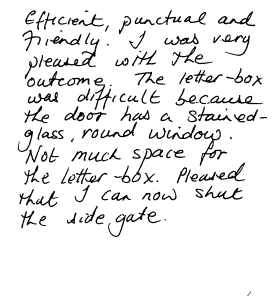 Efficient, punctual and
friendly. I was very
pleased with the
outcome. The letter-box
was difficult because
the door has a stained-
glass, round window.
Not much space for
the letter-box. Pleased
that I can now shut
the side gate.